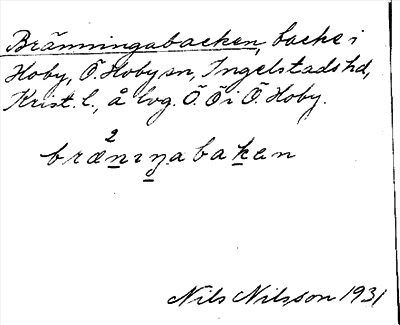 Bränningabacken, backe i
Hoby, Ö. Hoby sn, Ingelstads hd,
Krist. l., å lvg. Ö. Ö i Ö. Hoby.
2
brænıŋabakæn
Nils Nilsson 1931